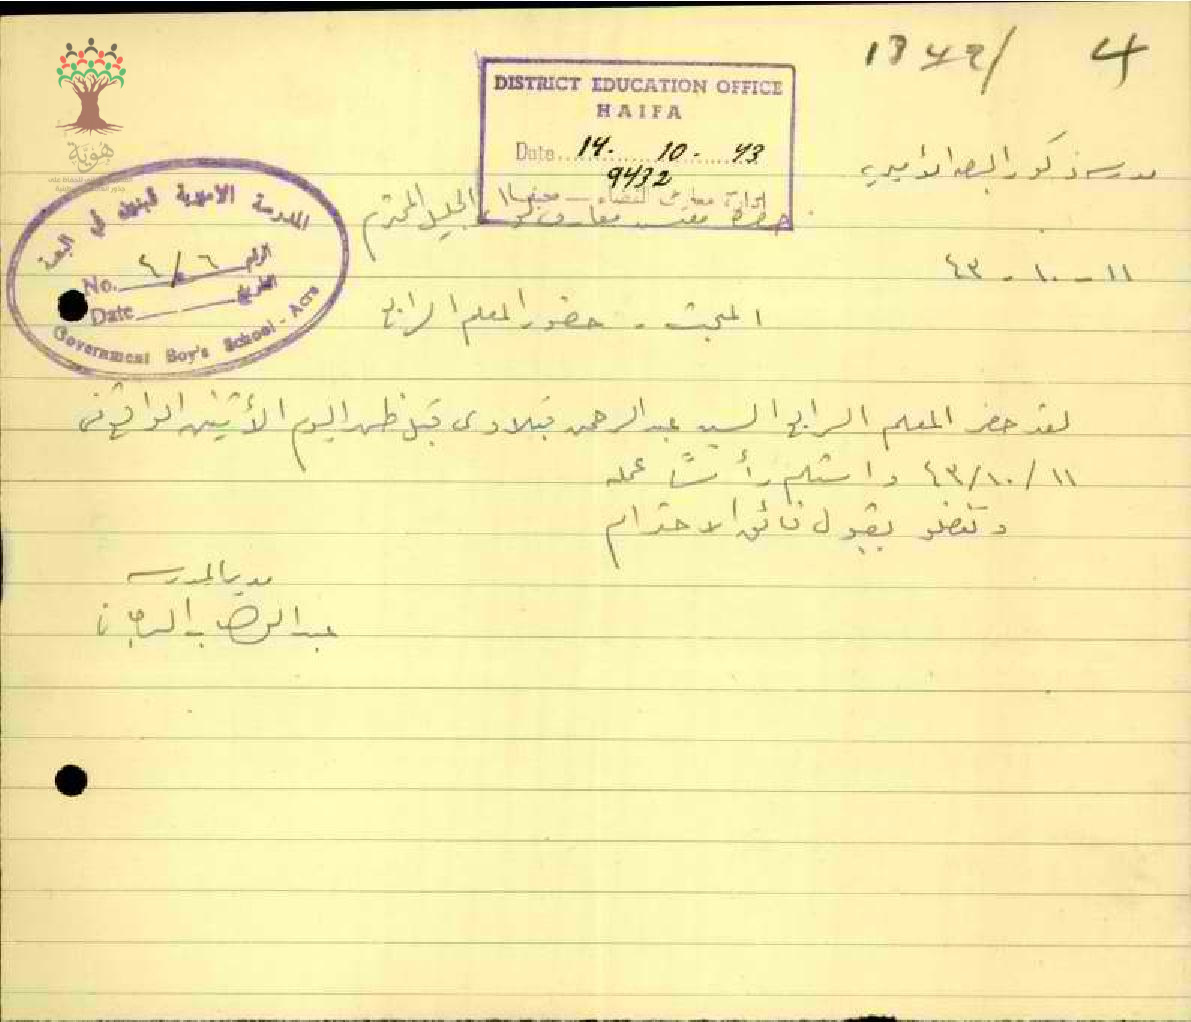 1342/ 4
DISTRICT EDUCATION OFFICE
HAIFA
Date 14. 10 - 43
9432
إدارة معارف لقضاء — حيفا
هوية
المدرسة الاميرية للبنين في البصة
No. ٤/٦ الرقم
Date التاريخ
Government Boy's School - Acre
مدرسة ذكور البصه الاميريه
حضرة مفتش معارف لواء الجليل المحترم
١١ - ١٠ - ٤٣
المبحث - حضور المعلم الرابع
لقد حضر المعلم الرابع السيد عبد الرحمن قبل ظهر اليوم الأثنين الواقع في
١١/١٠/٤٣ واستلم رأسًا عمله
وتفضلو بقبول فائق الاحترام
مدير المدرسه
عبد الوهاب